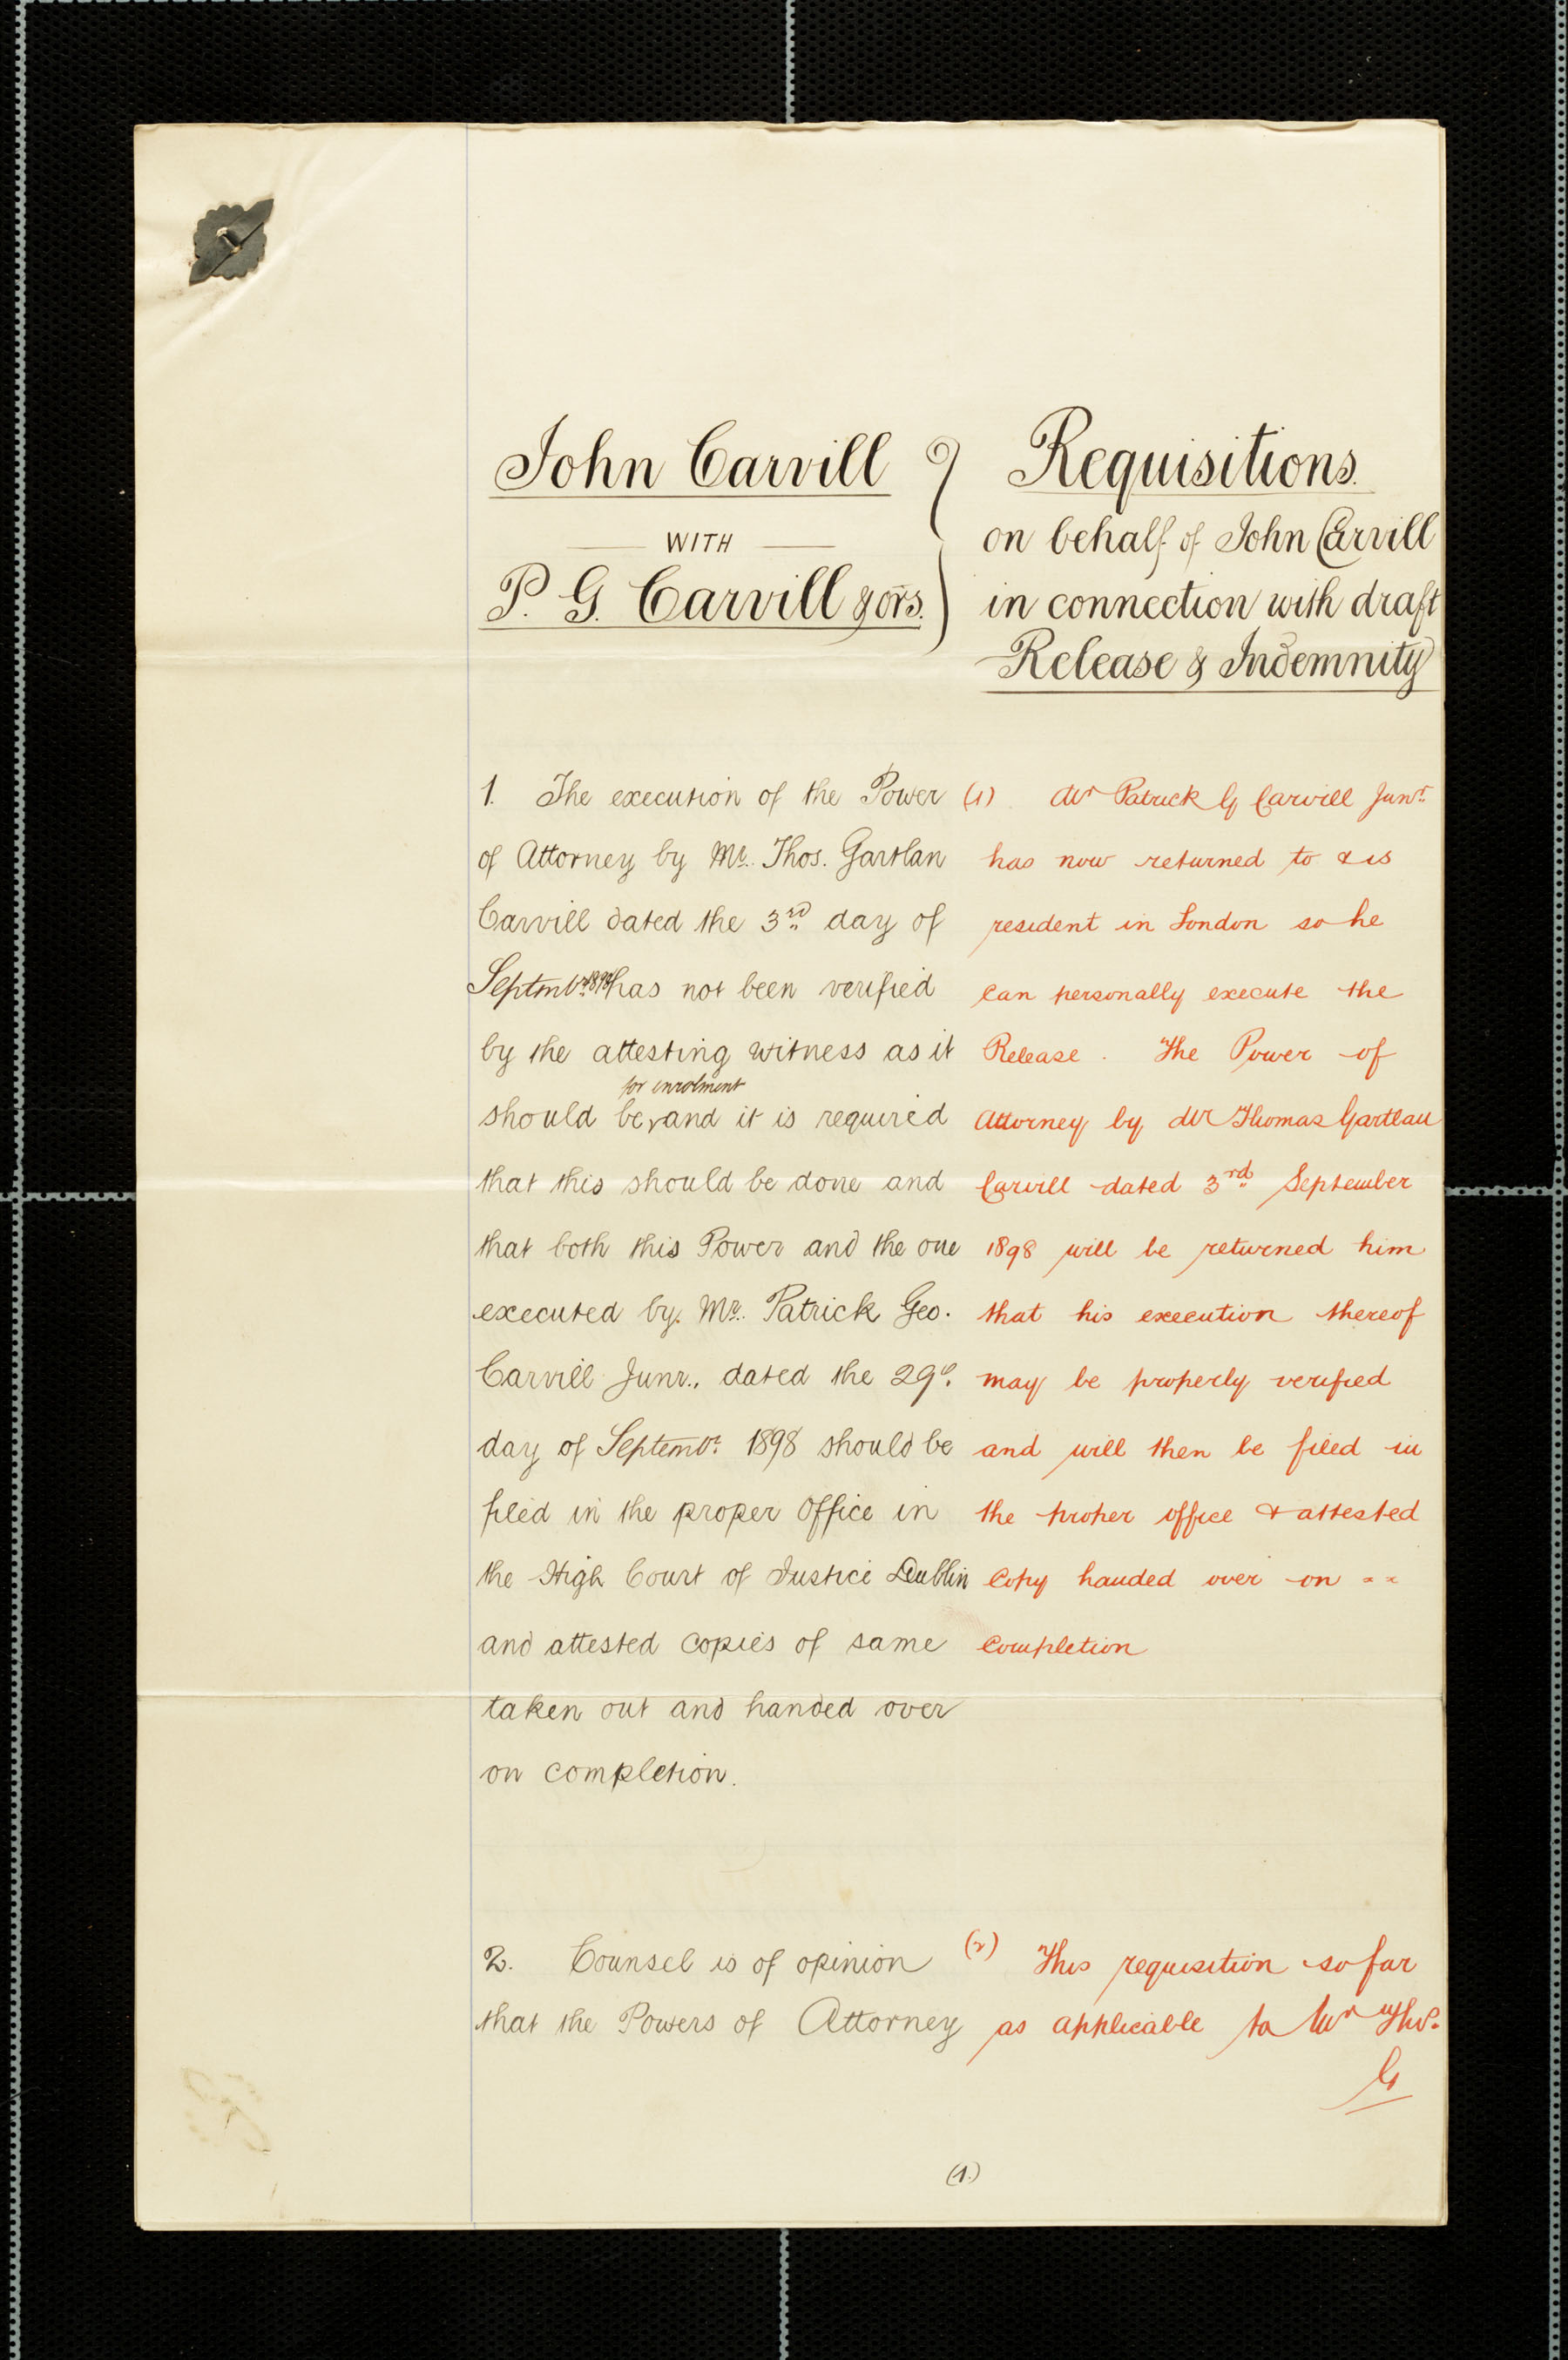 John Carvill
WITH
P. G. Carvill & ors.
Requisitions.
on behalf of John Carvill
in connection with draft
Release & Indemnity
1. The execution of the Power
of Attorney by Mr. Thos. Gartlan
Carvill dated the 3rd day of
Septembr. 1898 has not been verified
by the attesting witness as it
for enrolment
should be, and it is required
that this should be done and
that both this Power and the one
executed by Mr. Patrick Geo.
Carvill Junr., dated the 29th
day of Septembr. 1898 should be
filed in the proper Office in
the High Court of Justice Dublin
and attested copies of same
taken out and handed over
on completion.
(1) Mr Patrick G Carvill Junr.
has now returned to & is
resident in London so he
can personally execute the
Release. The Power of
Attorney by Mr Thomas Gartlan
Carvill dated 3rd September
1898 will be returned him
that his execution thereof
may be properly verified
and will then be filed in
the proper office & attested
Copy handed over on
Completion
2. Counsel is of opinion
that the Powers of Attorney
(2) This requisition so far
as applicable to Mr Thos.
G
(1.)